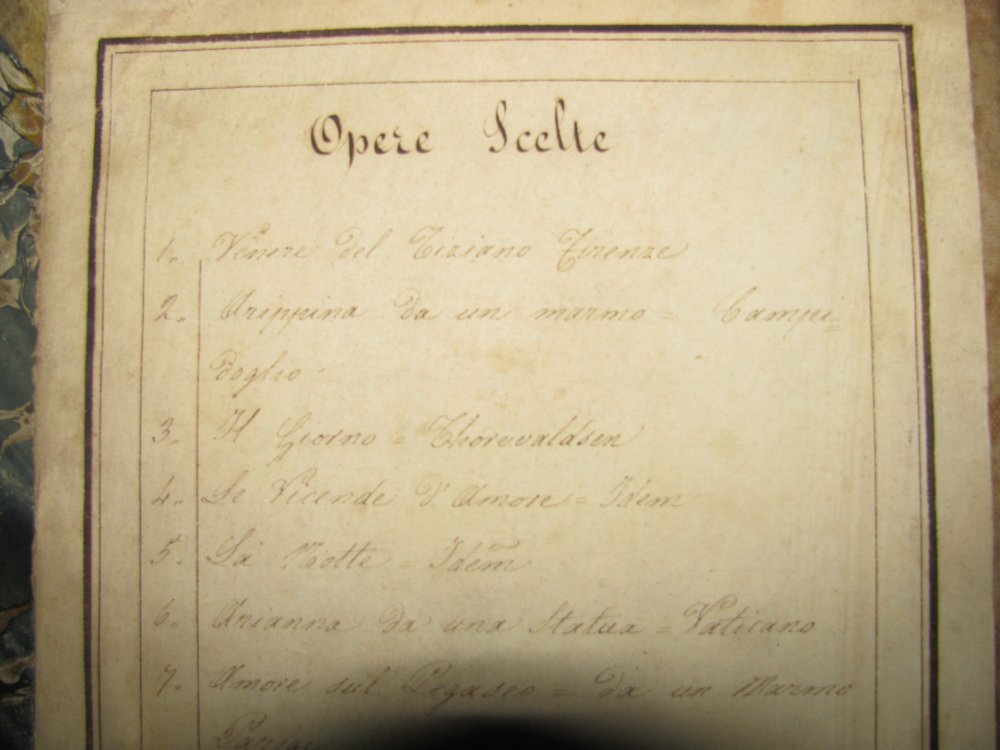 Opere Scelte
1. Venere del Tiziano Firenze
2. Arippina da un marmo = Campi=
doglio
3. Il Giorno = Thorwaldsen
4. Le Vicende d'Amore = Idem
5. La Notte = Idem
6. Arianna da una Statua = Vaticano
7. Amore sul Pegaseo = da un Marmo
Parigi